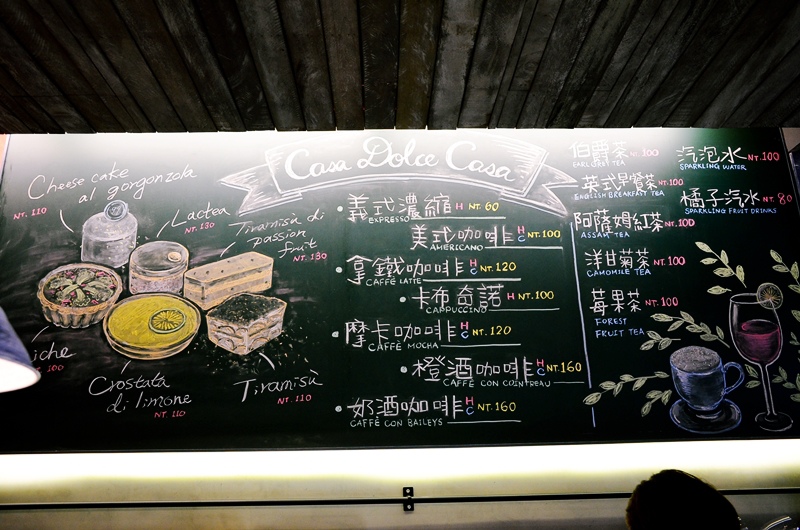 Casa Dolce Casa
Cheese cake
al gorgonzola
NT.110
Lactea
NT.130
Tiramisù di
passion
fruit
NT.130
iche
100
Crostata
di limone
NT.110
Tiramisù
NT.110
義式濃縮 H NT.60
EXPRESSO
美式咖啡 H C NT.100
AMERICANO
拿鐵咖啡 H C NT.120
CAFFÈ LATTE
卡布奇諾 H NT.100
CAPPUCCINO
摩卡咖啡 H C NT.120
CAFFÈ MOCHA
橙酒咖啡 H C NT.160
CAFFÈ CON COINTREAU
奶酒咖啡 H C NT.160
CAFFÈ CON BAILEYS
伯爵茶 NT.100
EARL GREY TEA
英式早餐茶 NT.100
ENGLISH BREAKFAST TEA
阿薩姆紅茶 NT.100
ASSAM TEA
洋甘菊茶 NT.100
CAMOMILE TEA
莓果茶 NT.100
FOREST
FRUIT TEA
汽泡水 NT.100
SPARKLING WATER
橘子汽水 NT.80
SPARKLING FRUIT DRINKS